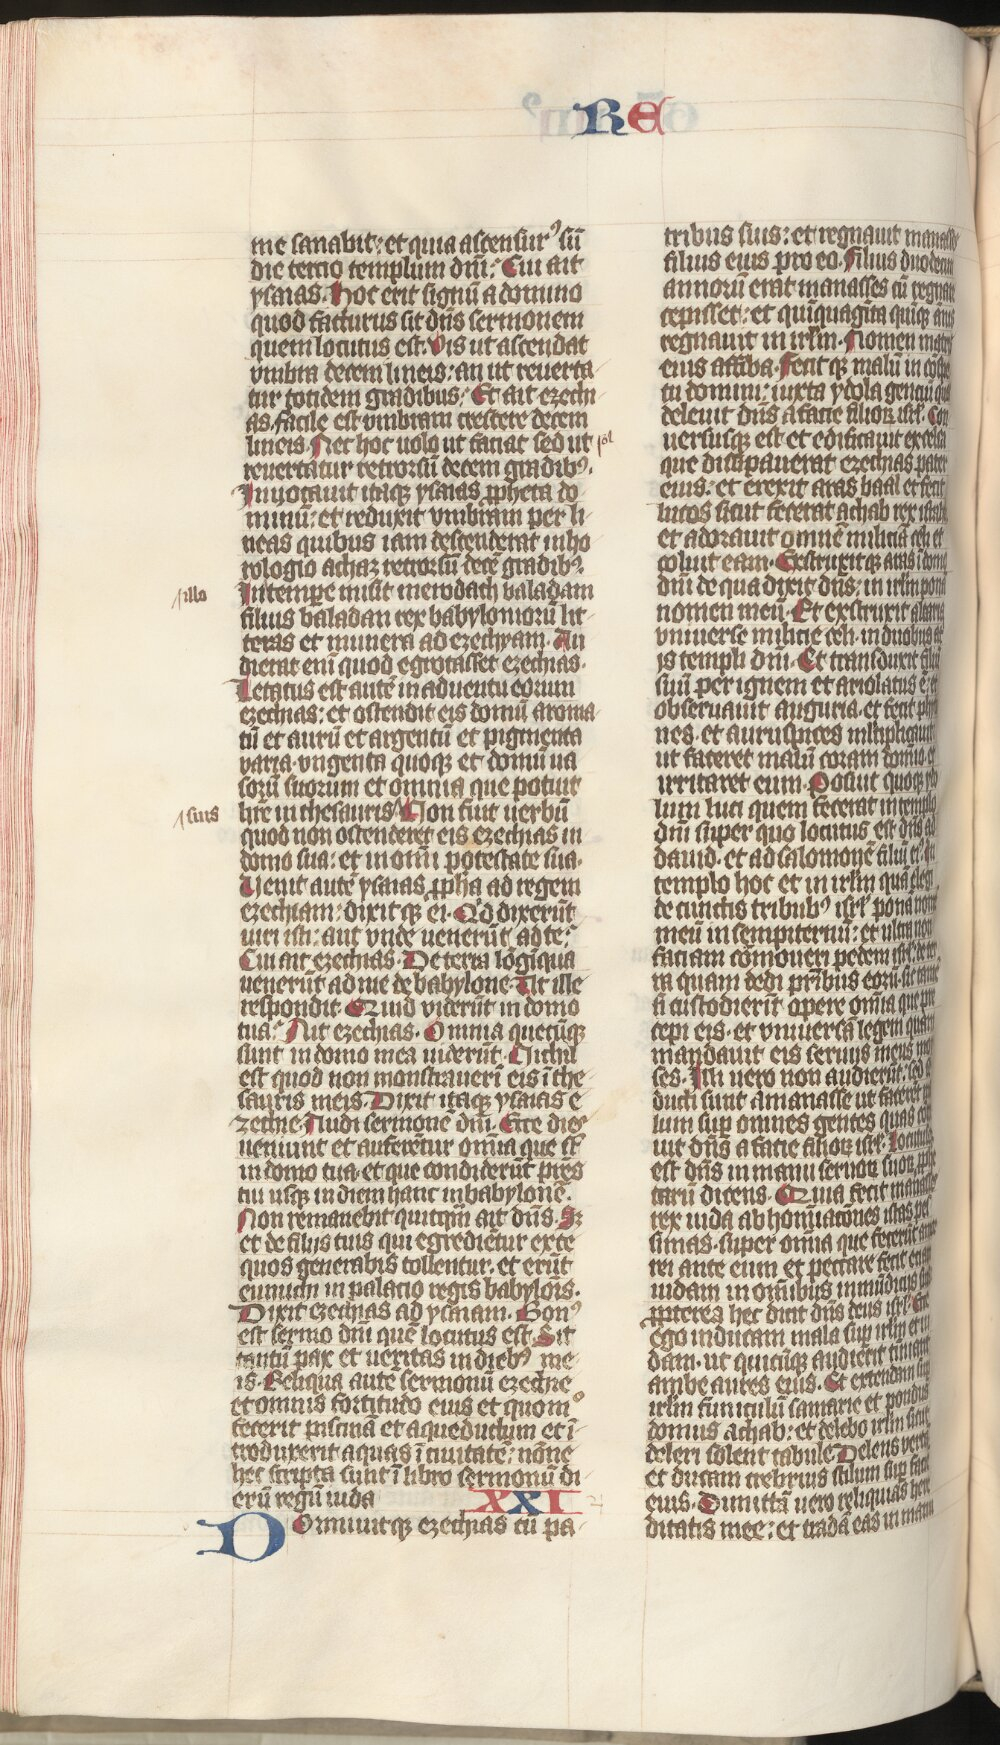 RE
me sanabit: et quia ascensurꝰ sū
die tercio templum dn̄i: Cui ait
ysaias. Hoc erit signū a domino
quod facturus sit dn̄s sermonem
quem locutus est. Vis ut ascendat
vmbra decem lineis: an ut reuerta
tur totidem gradibus: Et ait ezechi
as. facile est vmbram crescere decem
lineis. Nec hoc uolo ut faciat sed ut
reuertatur retrorsū decem gradibꝰ.
Inuocauit itaqꝫ ysaias ꝓpheta do
minū: et reduxit vmbram per li
neas quibus iam descenderat in ho
rologio achaz retrorsū decē gradibꝰ.
illo
In tempe misit merodach baladam
filius baladan rex babyloniorū lit
teras et munera ad ezechyam. Au
dierat eni quod egrotasset ezechias.
Letatus est autē in aduentu eorum
ezechias: et ostendit eis domū aroma
tū et aurū et argentū et pigmenta
varia. vngenta quoqꝫ et domū ua
sorū suorum et omnia que potuit
suis
hr̄e in thesauris Non fuit uerbū
quod non ostenderet eis ezechias in
domo sua: et in om̄i potestate sua.
Uenit autē ysaias ꝓpha ad regem
ezechiam: dixit qꝫ ei. Qd dixerūt
uiri isti: aut vnde uenerūt ad te:
Cui ait ezechias. De terra lōgīqua
uenerūt ad me de babylone. At ille
respondit. Quid viderūt in domo
tua: Ait ezechias. Omnia quecūqꝫ
sunt in domo mea uiderūt. Nichil
est quod non monstrauerī eis ī the
sauris meis. Dixit itaqꝫ ysaias e
zechie. Audi sermonē dn̄i. Ecce dies
ueniunt et auferētur om̄ia que st̄
in domo tua. et que condiderūt pr̄es
tui usqꝫ in diem hanc in babylonē.
Non remanebit quicqm̄ ait dn̄s. Sꝫ
et de filijs tuis qui egrediētur ex te
quos generabis tollentur. et erūt
eunuchi in palacio regis babylōis.
Dixit ezechias ad ysaiam. Bonꝰ
est sermo dn̄i quē locutus est. Sit
tantū pax et ueritas in diebꝰ me
is. Reliqua autē sermonū ezechie
et omnis fortitudo eius et quomº
fecerit piscinā et aqueductum et ī
troduxerit aquas ī ciuitatē: nōne
hec scripta sunt ī libro sermonū di
erū regū iuda
XXI
Dormiuitqꝫ ezechias cū pa
tribus suis: et regnauit manasses
filius eius pro eo. Filius duodecim
annorū erat manasses cū regnare
cepisset: et quīquagīta quīqꝫ
regnauit in irlm̄. Nomen
eius affiba. Fecit qꝫ malū in
tu domini: iuxta ydola genciū
deleuit dn̄s a facie filioꝝ isrl̄. Con
uersusqꝫ est et edificauit excelsa
que dissipauerat ezechias pater
eius: et erexit aras baal et fecit
lucos sicut fecerat achab rex
et adorauit omnē miliciā celi et
coluit eam. Exstruxitqꝫ aras ī domo
dn̄i de qua dixit dn̄s: in irlm̄ ponā
nomen meū. Et exstruxit altaria
vniuerse milicie celi. in duobus
js templi dn̄i. Et transduxit filiū
suū per ignem et ariolatus ē: et
obseruauit auguria. et fecit
nes. et auruspices
ut faceret malū coram domīo. et
irritaret eum. Posuit quoqꝫ
lum luci quem fecerat in templo
dn̄i super quo locutus est dn̄s ad
dauid. et ad salomonē filiū
templo hoc et in irlm̄ quā elegi
de cunctis tribubꝰ isrl̄ ponā
meū in sempiternū: et ultra non
faciam cōmoueri pedem isrl̄. de ter
ra quam dedi pr̄ibus eorū: sic
si custodierīt opere om̄ia que pre
cepi eis. et vniuersā legem quam
mandauit eis seruus meus moy
ses. Illi uero non audierūt: sed
ducti sunt a manasse ut facerēt
lum sup omnes gentes quas
uit dn̄s a facie filioꝝ isrl̄. Locutusqꝫ
est dn̄s in manu seruoꝝ suoꝝ
tarū dicens. Quia fecit manasses
rex iuda abhomīacōnes istas
simas. super om̄ia que fecerūt
rei ante eum et peccare fecit eciam
iudam in om̄ibus inmūdicijs
ꝓpterea hec dicit dn̄s deus isrl̄. Ecce
ego inducam mala sup irlm̄ et iu
dam. ut quicūqꝫ audierit tīniant
ambe aures eius. Et extendam sup
irlm̄ funiculū samarie et pondus
domus achab: et delebo irlm̄ sicut
deleri solent tabule Delens
et ducam crebrius stilum sup faciē
eius. Dimittā uero reliquias here
ditatis mee: et tradā eas in manu